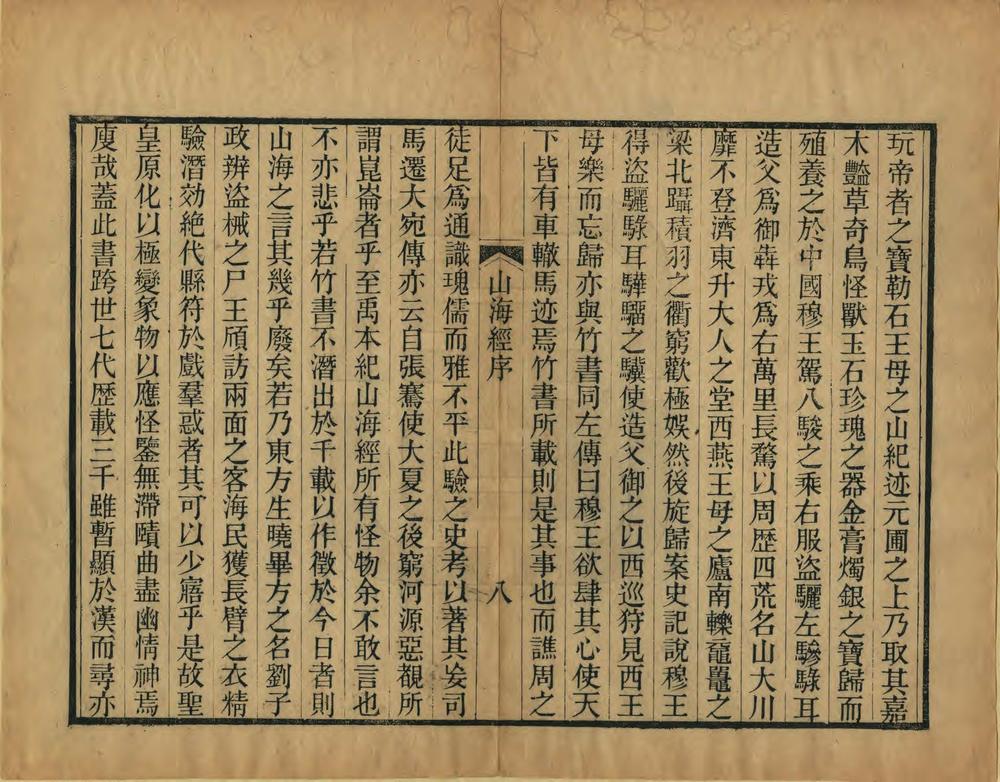 玩帝者之寶勒石王母之山紀迹元圃之上乃取其嘉
木豔草奇鳥怪獸玉石珍瑰之器金膏燭銀之寶歸而
殖養之於中國穆王駕八駿之乘右服盜驪左驂騄耳
造父爲御犇戎爲右萬里長騖以周歷四荒名山大川
靡不登濟東升大人之堂西燕王母之廬南轢黿鼉之
梁北躡積羽之衢窮歡極娛然後旋歸案史記說穆王
得盜驪騄耳驊騮之驥使造父御之以西巡狩見西王
母樂而忘歸亦與竹書同左傳曰穆王欲肆其心使天
下皆有車轍馬迹焉竹書所載則是其事也而譙周之
山海經序 八
徒足爲通識瑰儒而雅不平此驗之史考以著其妄司
馬遷大宛傳亦云自張騫使大夏之後窮河源惡覩所
謂崑崙者乎至禹本紀山海經所有怪物余不敢言也
不亦悲乎若竹書不潛出於千載以作徵於今日者則
山海之言其幾乎廢矣若乃東方生曉畢方之名劉子
政辨盜械之尸王頎訪兩面之客海民獲長臂之衣精
驗潛効絕代縣符於戲羣惑者其可以少寤乎是故聖
皇原化以極變象物以應怪鑒無滯賾曲盡幽情神焉
廋哉蓋此書跨世七代歷載三千雖暫顯於漢而尋亦